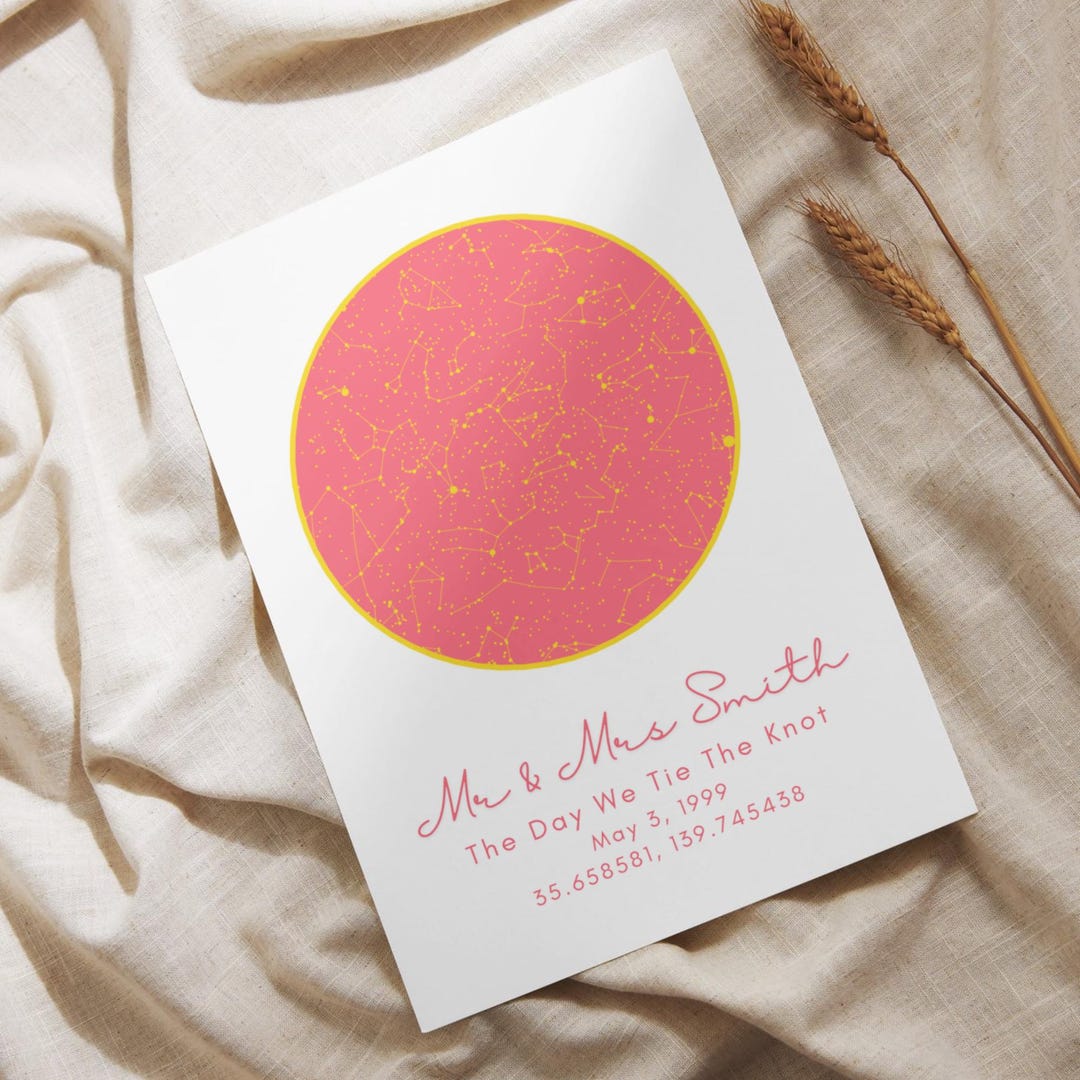 Mr & Mrs Smith
The Day We Tie The Knot
May 3, 1999
35.658581, 139.745438